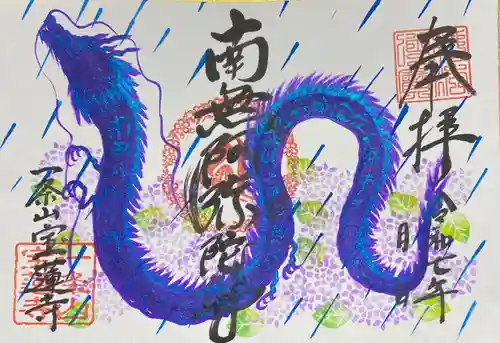 奉拝
令和七年
月 日
南無阿弥陀仏
一茶山宝蓮寺